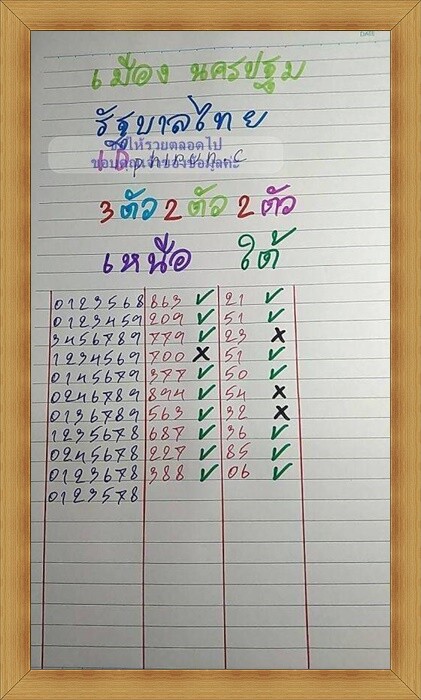 DATE
เมือง นครปฐม
รัฐบาลไทย
ให้รวยตลอดไป
3 ตัว 2 ตัว 2 ตัว
เหนือ ใต้
0123568 863 ✓ 21 ✓
0123459 209 ✓ 51 ✓
3456789 779 ✓ 23 ✗
1234569 700 ✗ 51 ✓
0145679 377 ✓ 50 ✓
0246789 894 ✓ 54 ✗
0136789 563 ✓ 32 ✗
1235678 687 ✓ 36 ✓
0245678 227 ✓ 85 ✓
0123678 388 ✓ 06 ✓
0123578